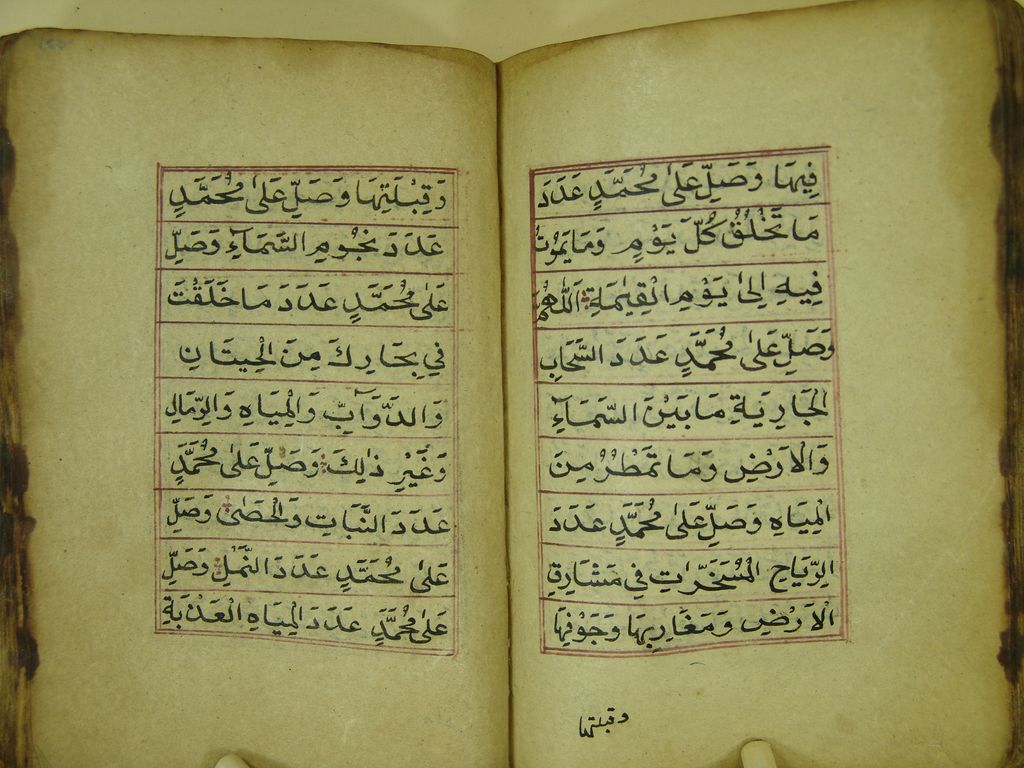 فِيهَا وَصَلِّ عَلٰى مُحَمَّدٍ عَدَدَ
مَا تَخْلُقُ كُلَّ يَوْمٍ وَمَا يَمُوتُ
فِيهِ اِلٰى يَوْمِ الْقِيٰمَةِ اَللّٰهُمَّ
وَصَلِّ عَلٰى مُحَمَّدٍ عَدَدَ السَّحَابِ
الْجَارِيَةِ مَا بَيْنَ السَّمَآءِ
وَالْاَرْضِ وَمَا تَمْطُرُ مِنَ
الْمِيَاهِ وَصَلِّ عَلٰى مُحَمَّدٍ عَدَدَ
الرِّيَاحِ الْمُسَخَّرَاتِ فِي مَشَارِقِ
الْاَرْضِ وَمَغَارِبِهَا وَجَوْفِهَا
وقبلتها
وَقِبْلَتِهَا وَصَلِّ عَلٰى مُحَمَّدٍ
عَدَدَ نُجُومِ السَّمَآءِ وَصَلِّ
عَلٰى مُحَمَّدٍ عَدَدَ مَا خَلَقْتَ
فِي بِحَارِكَ مِنَ الْحِيتَانِ
وَالدَّوَآبِّ وَالْمِيَاهِ وَالرِّمَالِ
وَغَيْرِ ذٰلِكَ وَصَلِّ عَلٰى مُحَمَّدٍ
عَدَدَ النَّبَاتِ وَالْحَصٰى وَصَلِّ
عَلٰى مُحَمَّدٍ عَدَدَ النَّمْلِ وَصَلِّ
عَلٰى مُحَمَّدٍ عَدَدَ الْمِيَاهِ الْعَذْبَةِ